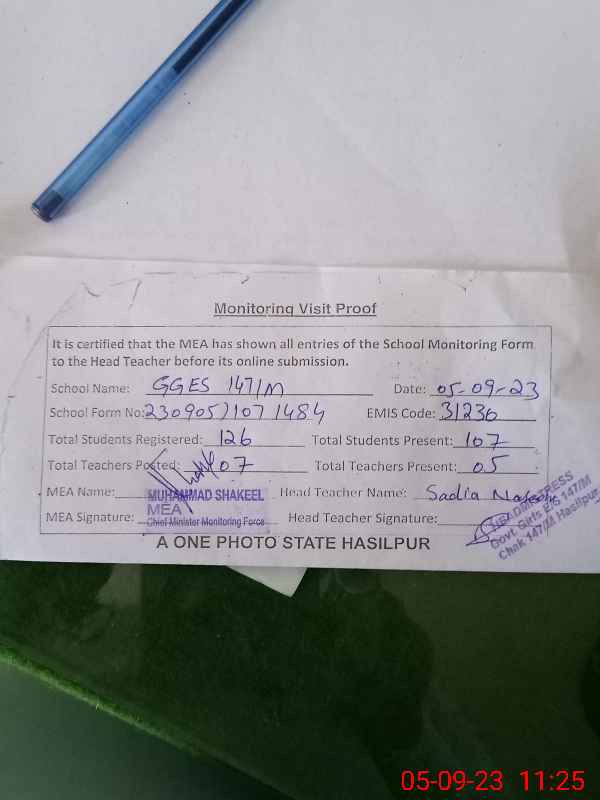 Monitoring Visit Proof
It is certified that the MEA has shown all entries of the School Monitoring Form
to the Head Teacher before its online submission.
School Name: GGES 147/M Date: 05-09-23
School Form No: 230905/107 1484 EMIS Code: 31230
Total Students Registered: 126 Total Students Present: 107
Total Teachers Posted: 07 Total Teachers Present: 05
MEA Name: MUHAMMAD SHAKEEL Head Teacher Name: Sadia
MEA
MEA Signature: Chief Minister Monitoring Force Head Teacher Signature:
HEADMISTRESS
Govt. Girls E/S 147/M
Chak 147/M Hasilpur
A ONE PHOTO STATE HASILPUR
05-09-23 11:25